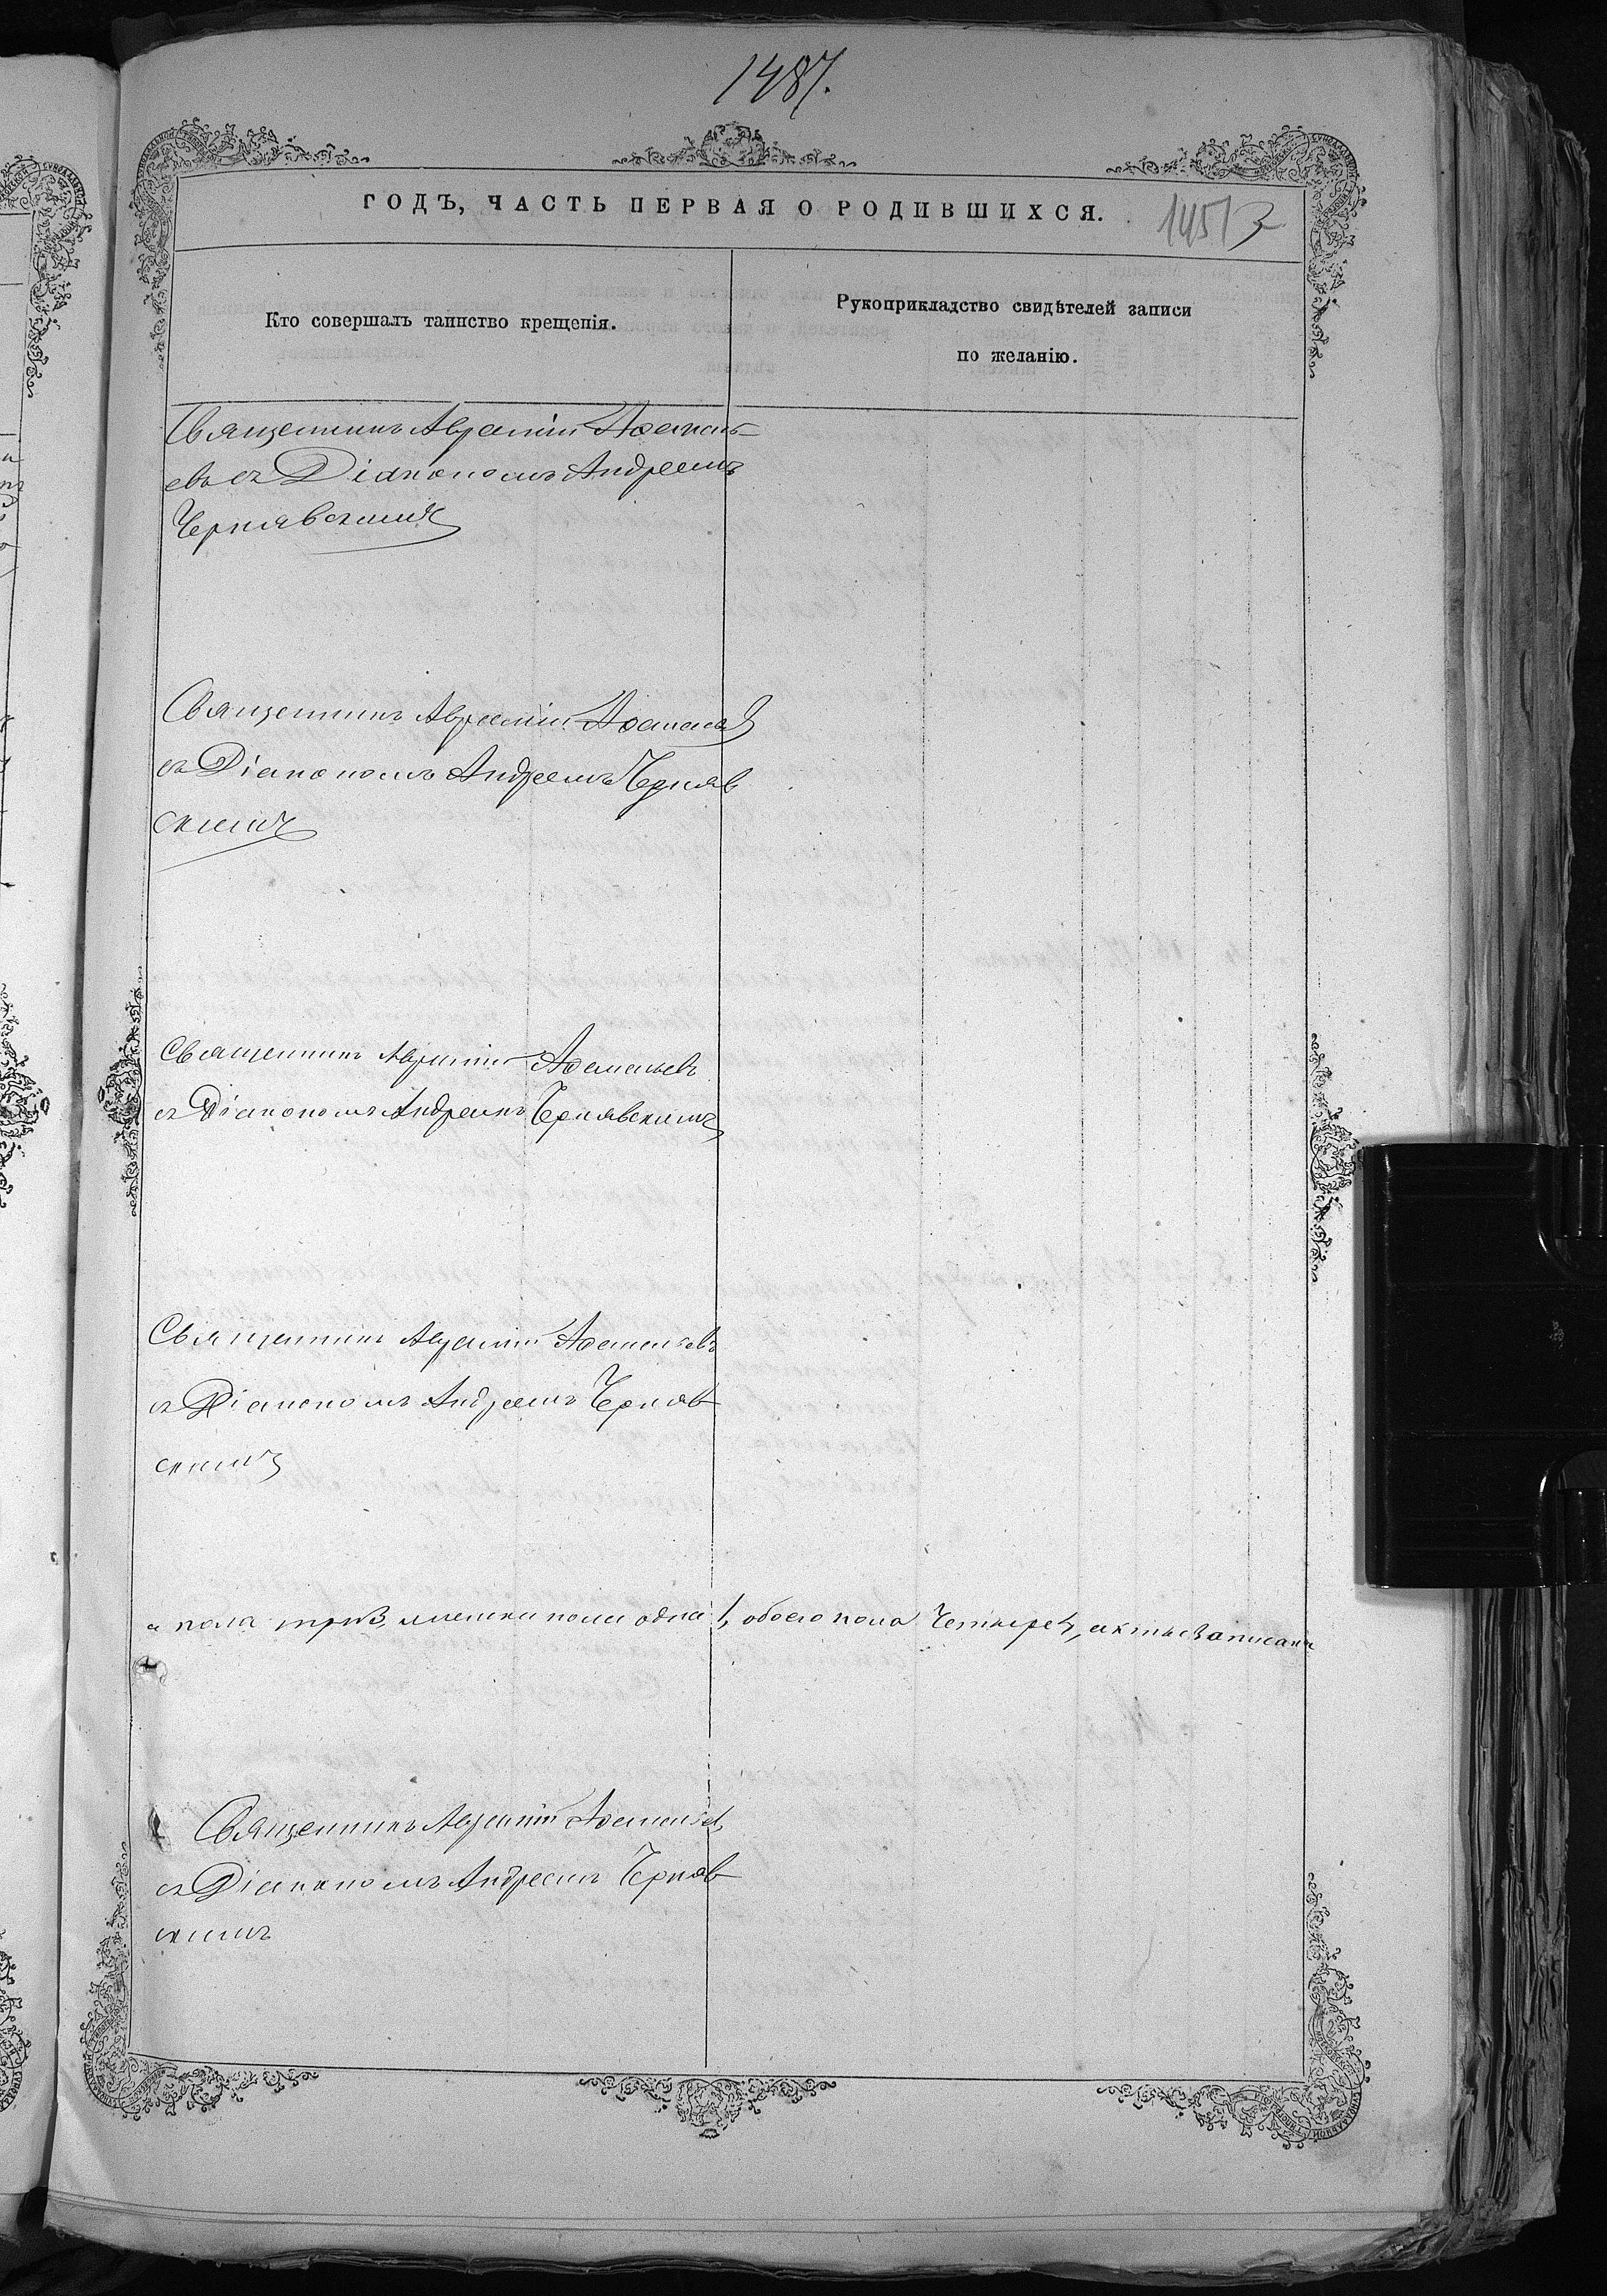 1487.
ГОДЪ, ЧАСТЬ ПЕРВАЯ О РОДИВШИХСЯ.
Кто совершалъ таинство крещенія.
Рукоприкладство свидѣтелей записи
по желанію.
Священникъ Авраамій
съ Діакономъ Андреемъ
Чернявскимъ
Священникъ Авраамій
съ Діакономъ Андреемъ Черняв
скимъ
Священникъ Авраамій
съ Діакономъ Андреемъ Чернявскимъ
Священникъ Авраамій
съ Діакономъ Андреемъ Черняв
скимъ
пола три 3, женска пола одна 1, обоего пола Четыре 4, акты записаны
Священникъ Авраамій
съ Діакономъ Андреемъ Черняв
скимъ